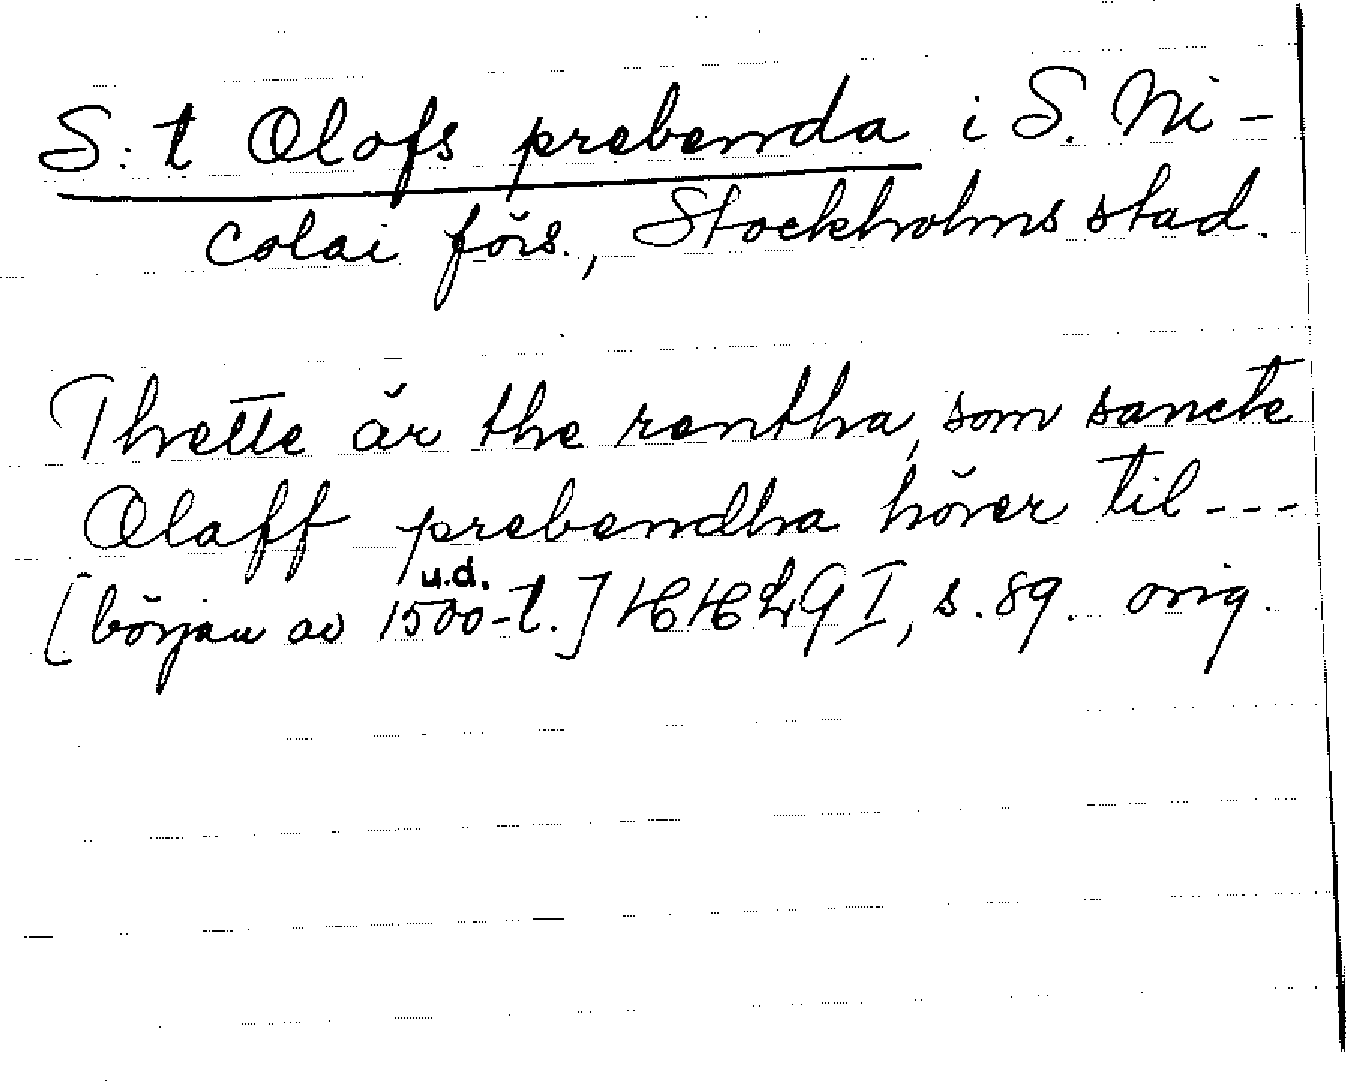 S:t Olofs prebenda i S. Ni-
colai förs., Stockholms stad.
Thette är the rentha, som sancte
Olaff prebendha hörer til ---
u.d.
[början av 1500-t.] HH29 I, s. 89. orig.